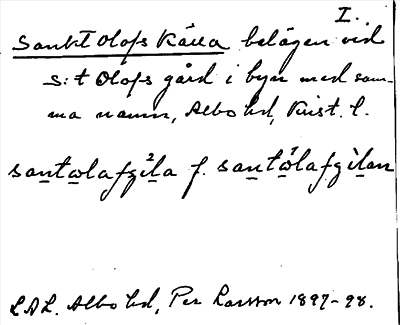 I.
Sankt Olofs Källa belägen vid
S:t Olofs gård i byn med sam-
ma namn, Albo hd, Krist. l.
santolafçila f. santolafçilan
LAL. Albo hd, Per Larsson 1897-98.